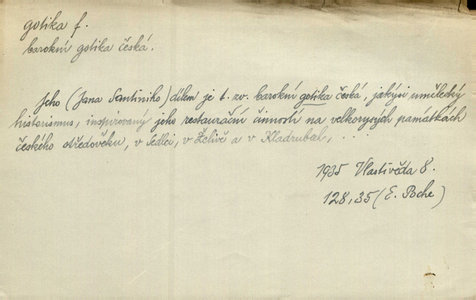 gotika f.
barokní gotika česká.
Jeho (Jana Santiniho) dílem je t. zv. barokní gotika česká, jakýsi umělecký
historismus, inspirovaný jeho restaurační činností na velkorysých památkách
českého středověku, v Sedlci, v Želivě a v Kladrubech, . . .
1935 Vlastivěda 8.
128,35 (E. Poche)